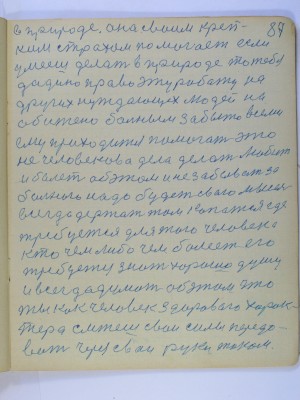 87
в природе. она своим креп-
ким страхом помогает если
умееш делат в природе то тебя
дадино право эту работу на
других нуждающех людей на
обижено болным забыто всеми
ему приходится помогат это
не человекова дела делат любит
и болет об этом и не забыват за
болного надо будет своего мысл
всегда держат там копатся где
требуется для того человека
кто чем либо чем болеет его
требуется знат хорошо душу
и всегда думат об этом это
ты как человек здароваго харак-
тера смееш свои силы передо-
ват через свои руки током.